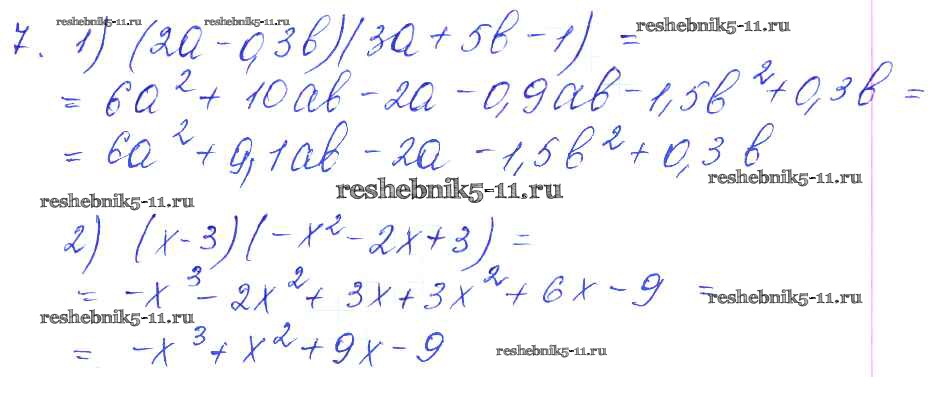 reshebnik5-11.ru reshebnik5-11.ru reshebnik5-11.ru
7. 1) (2a - 0,3b)(3a + 5b - 1) =
= 6a² + 10ab - 2a - 0,9ab - 1,5b² + 0,3b =
= 6a² + 9,1ab - 2a - 1,5b² + 0,3b
reshebnik5-11.ru reshebnik5-11.ru reshebnik5-11.ru
2) (x - 3)(-x² - 2x + 3) =
= -x³ - 2x² + 3x + 3x² + 6x - 9 =
reshebnik5-11.ru reshebnik5-11.ru
= -x³ + x² + 9x - 9
reshebnik5-11.ru